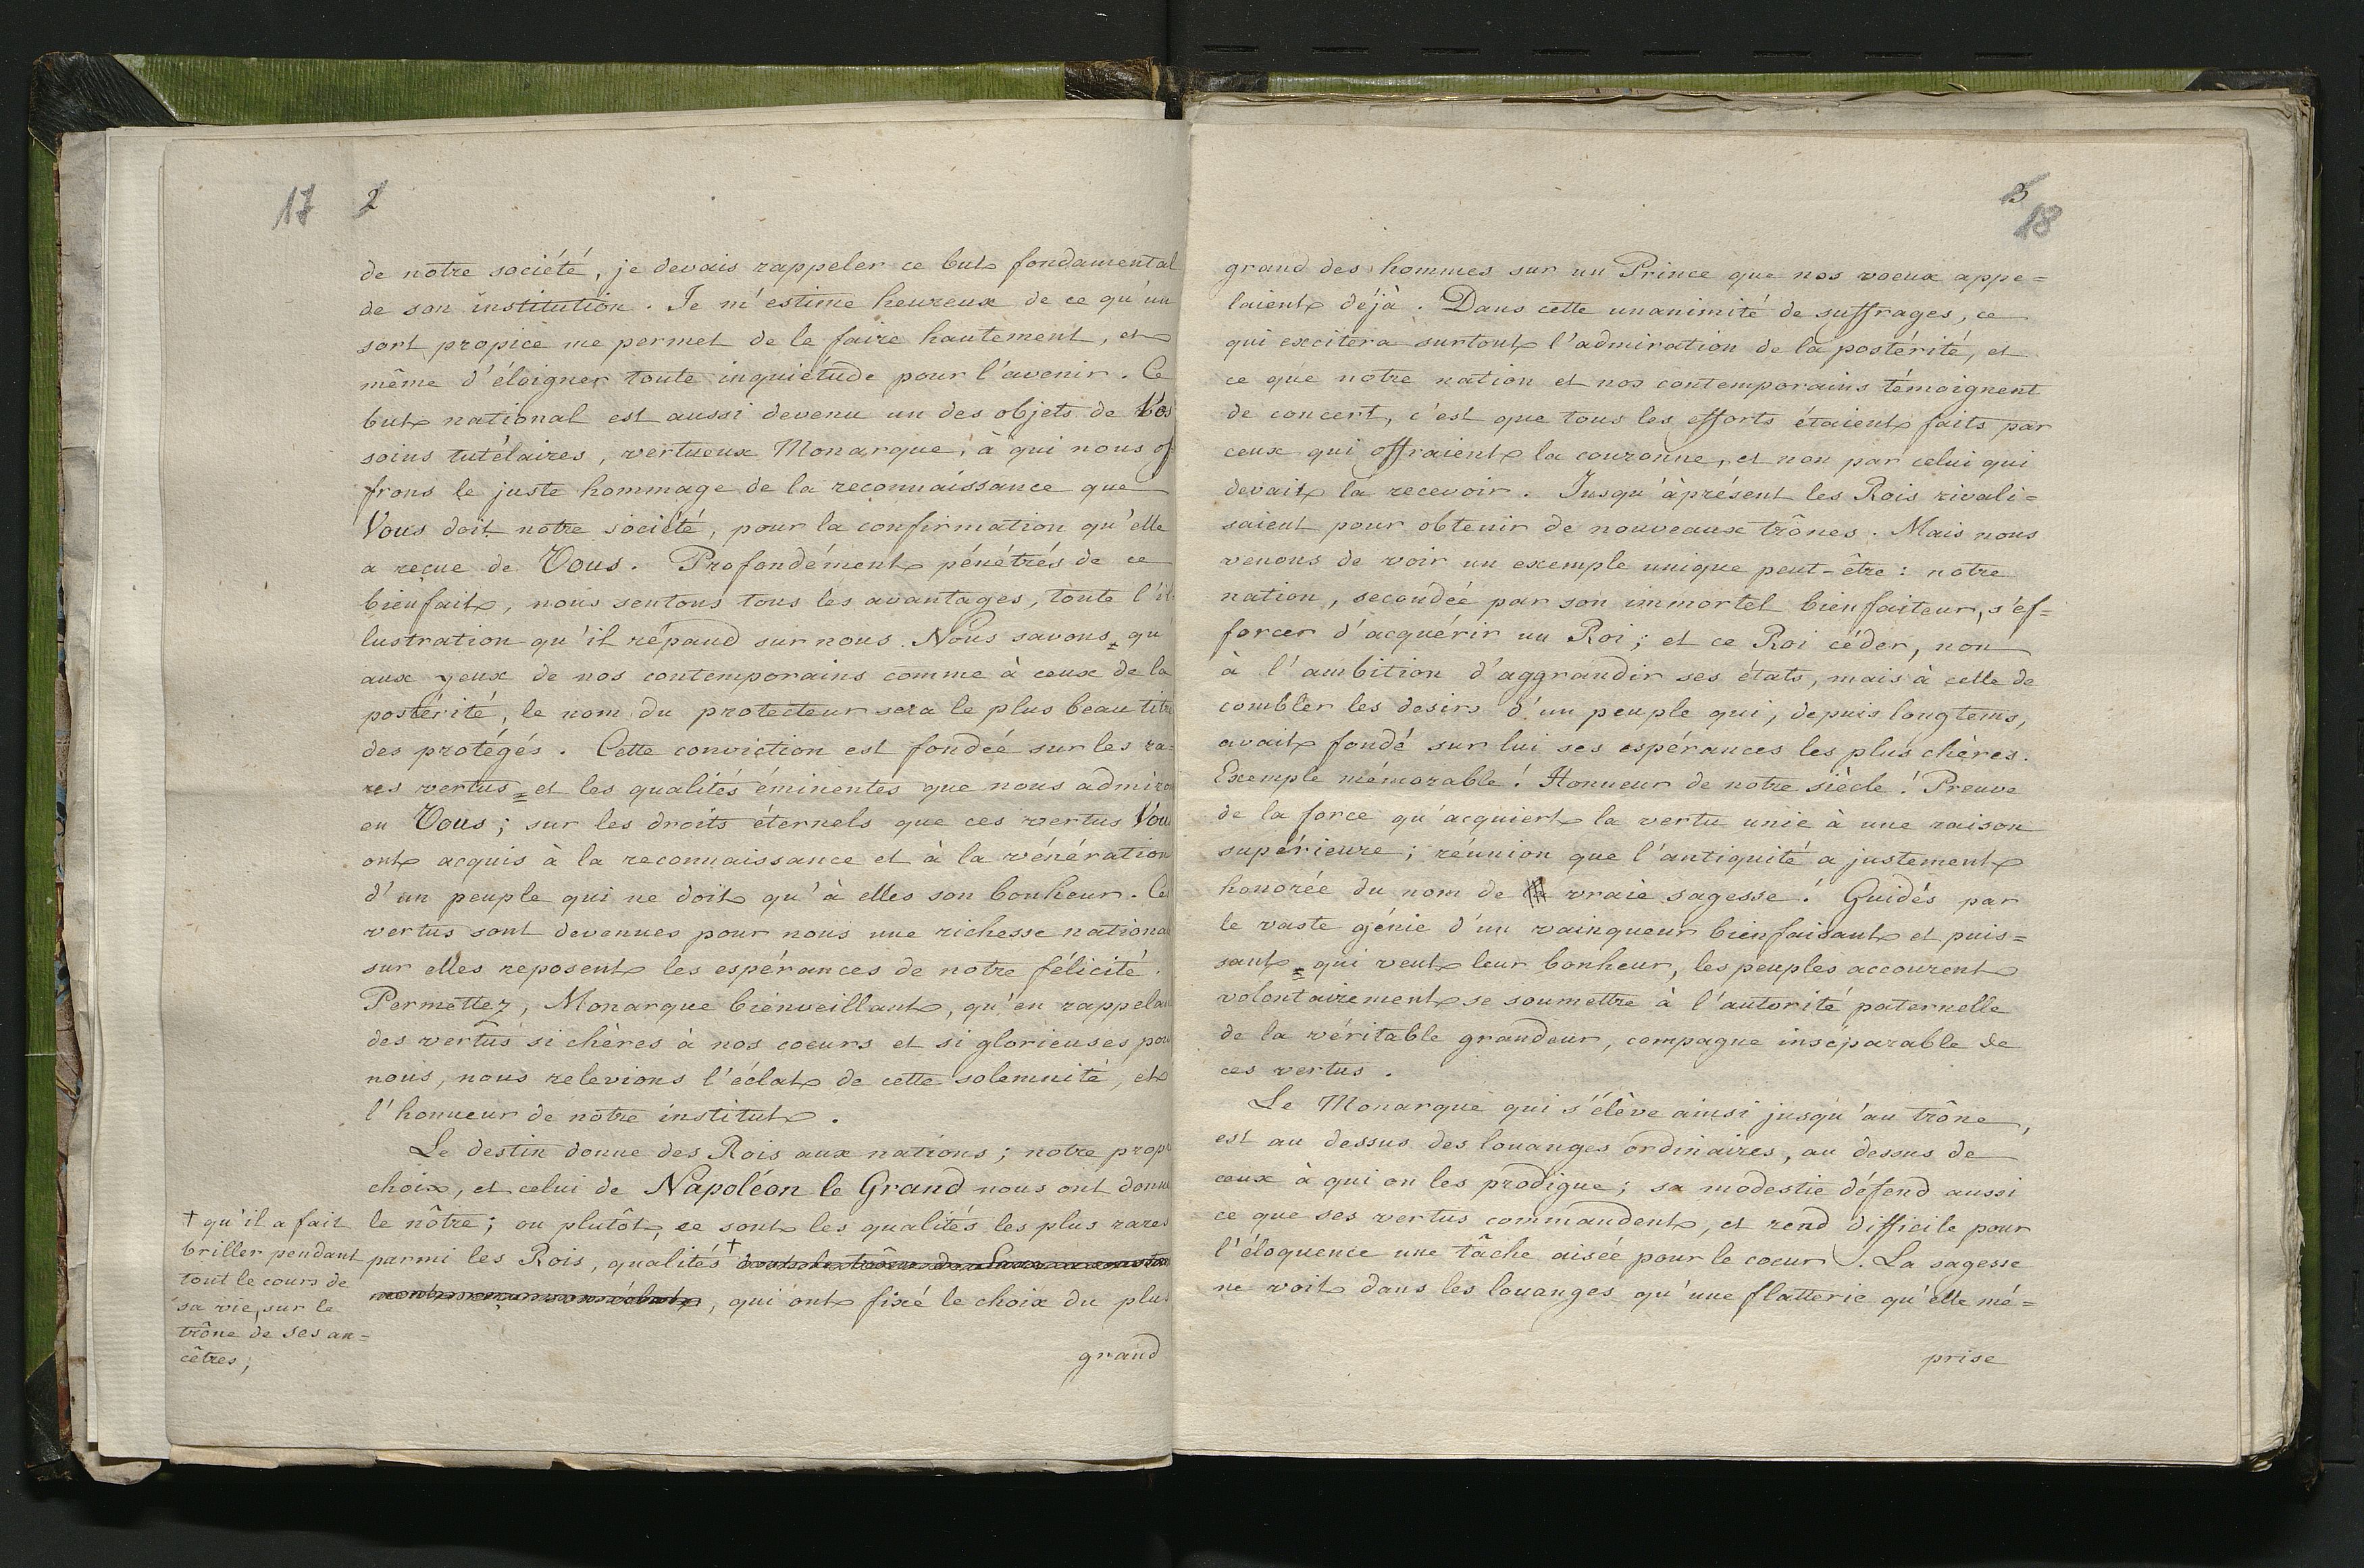 17 2
de notre société, je devais rappeler ce but fondamental
de son institution. Je m'estime heureux de ce qu'un
sort propice me permet de le faire hautement, et
même d'éloigner toute inquiétude pour l'avenir. Ce
but national est aussi devenu un des objets de Vos
soins tutélaires, vertueux Monarque, à qui nous of
frons le juste hommage de la reconnaissance que
Vous doit notre société, pour la confirmation qu'elle
a reçue de Vous. Profondément pénétrés de ce
bienfait, nous sentons tous les avantages, toute l'il
lustration qu'il répand sur nous. Nous savons qu'
aux yeux de nos contemporains comme à ceux de la
postérité, le nom du protecteur sera le plus beau titre
des protégés. Cette conviction est fondée sur les ra-
res vertus et les qualités éminentes que nous admiron
en Vous; sur les droits éternels que ces vertus Vou
ont acquis à la reconnaissance et à la vénération
d'un peuple qui ne doit qu'à elles son bonheur. Ces
vertus sont devenues pour nous une richesse national
sur elles reposent les espérances de notre félicité.
Permettez, Monarque bienveillant, qu'en rappelan
des vertus si chères à nos coeurs et si glorieuses pou
nous, nous relevions l'éclat de cette solemnité, et
l'honneur de notre institut.
Le destin donne des Rois aux nations; notre propr
choix, et celui de Napoléon le Grand nous ont donné
le nôtre; ou plutôt, ce sont les qualités les plus rares
parmi les Rois, qualités †
, qui ont fixé le choix du plus
grand
† qu'il a fait
briller pendant
tout le cours de
sa vie, sur le
trône de ses an=
cêtres,
3
18
grand des hommes sur un Prince que nos voeux appe=
laient déjà. Dans cette unanimité de suffrages, ce
qui excitera surtout l'admiration de la postérité, et
ce que notre nation et nos contemporains témoignent
de concert, c'est que tous les efforts étaient faits par
ceux qui offraient la couronne, et non par celui qui
devait la recevoir. Jusqu'àprésent les Rois rivali=
saient pour obtenir de nouveaux trônes. Mais nous
venons de voir un exemple unique peut-être: notre
nation, secondée par son immortel bienfaiteur, s'ef=
forcer d'acquérir un Roi; et ce Roi céder, non
à l'ambition d'aggrandir ses états, mais à celle de
combler les desirs d'un peuple qui, depuis longtems,
avait fondé sur lui ses espérances les plus chères.
Exemple mémorable! Honneur de notre siècle! Preuve
de la force qu'acquiert la vertu unie à une raison
supérieure; réunion que l'antiquité a justement
honorée du nom de vraie sagesse! Guidés par
le vaste génie d'un vainqueur bienfaisant et puis=
sant qui veut leur bonheur, les peuples accourent
volontairement se soumettre à l'autorité paternelle
de la véritable grandeur, compagne inséparable de
ces vertus.
Le Monarque qui s'élève ainsi jusqu'au trône,
est au dessus des louanges ordinaires, au dessus de
ceux à qui on les prodigue; sa modestie défend aussi
ce que ses vertus commandent, et rend difficile pour
l'éloquence une tâche aisée pour le coeur. La sagesse
ne voit dans les louanges qu'une flatterie qu'elle mé=
prise